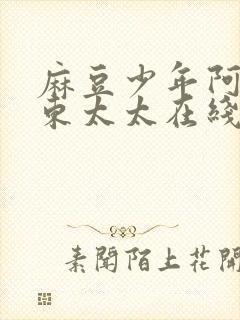 麻豆少年阿
东太太在綫
素聞陌上花開